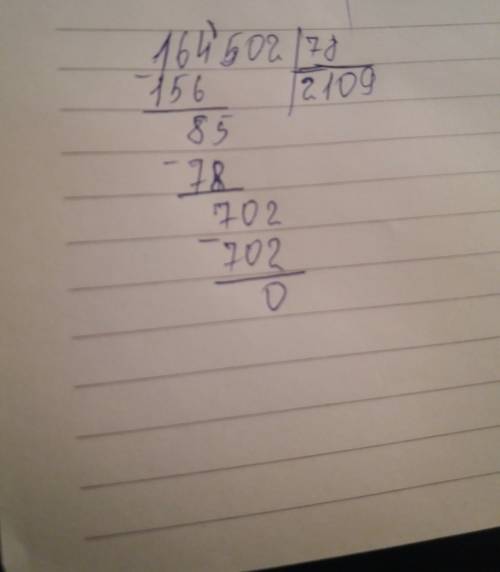 164502 78
-156 2109
85
-78
702
-702
0